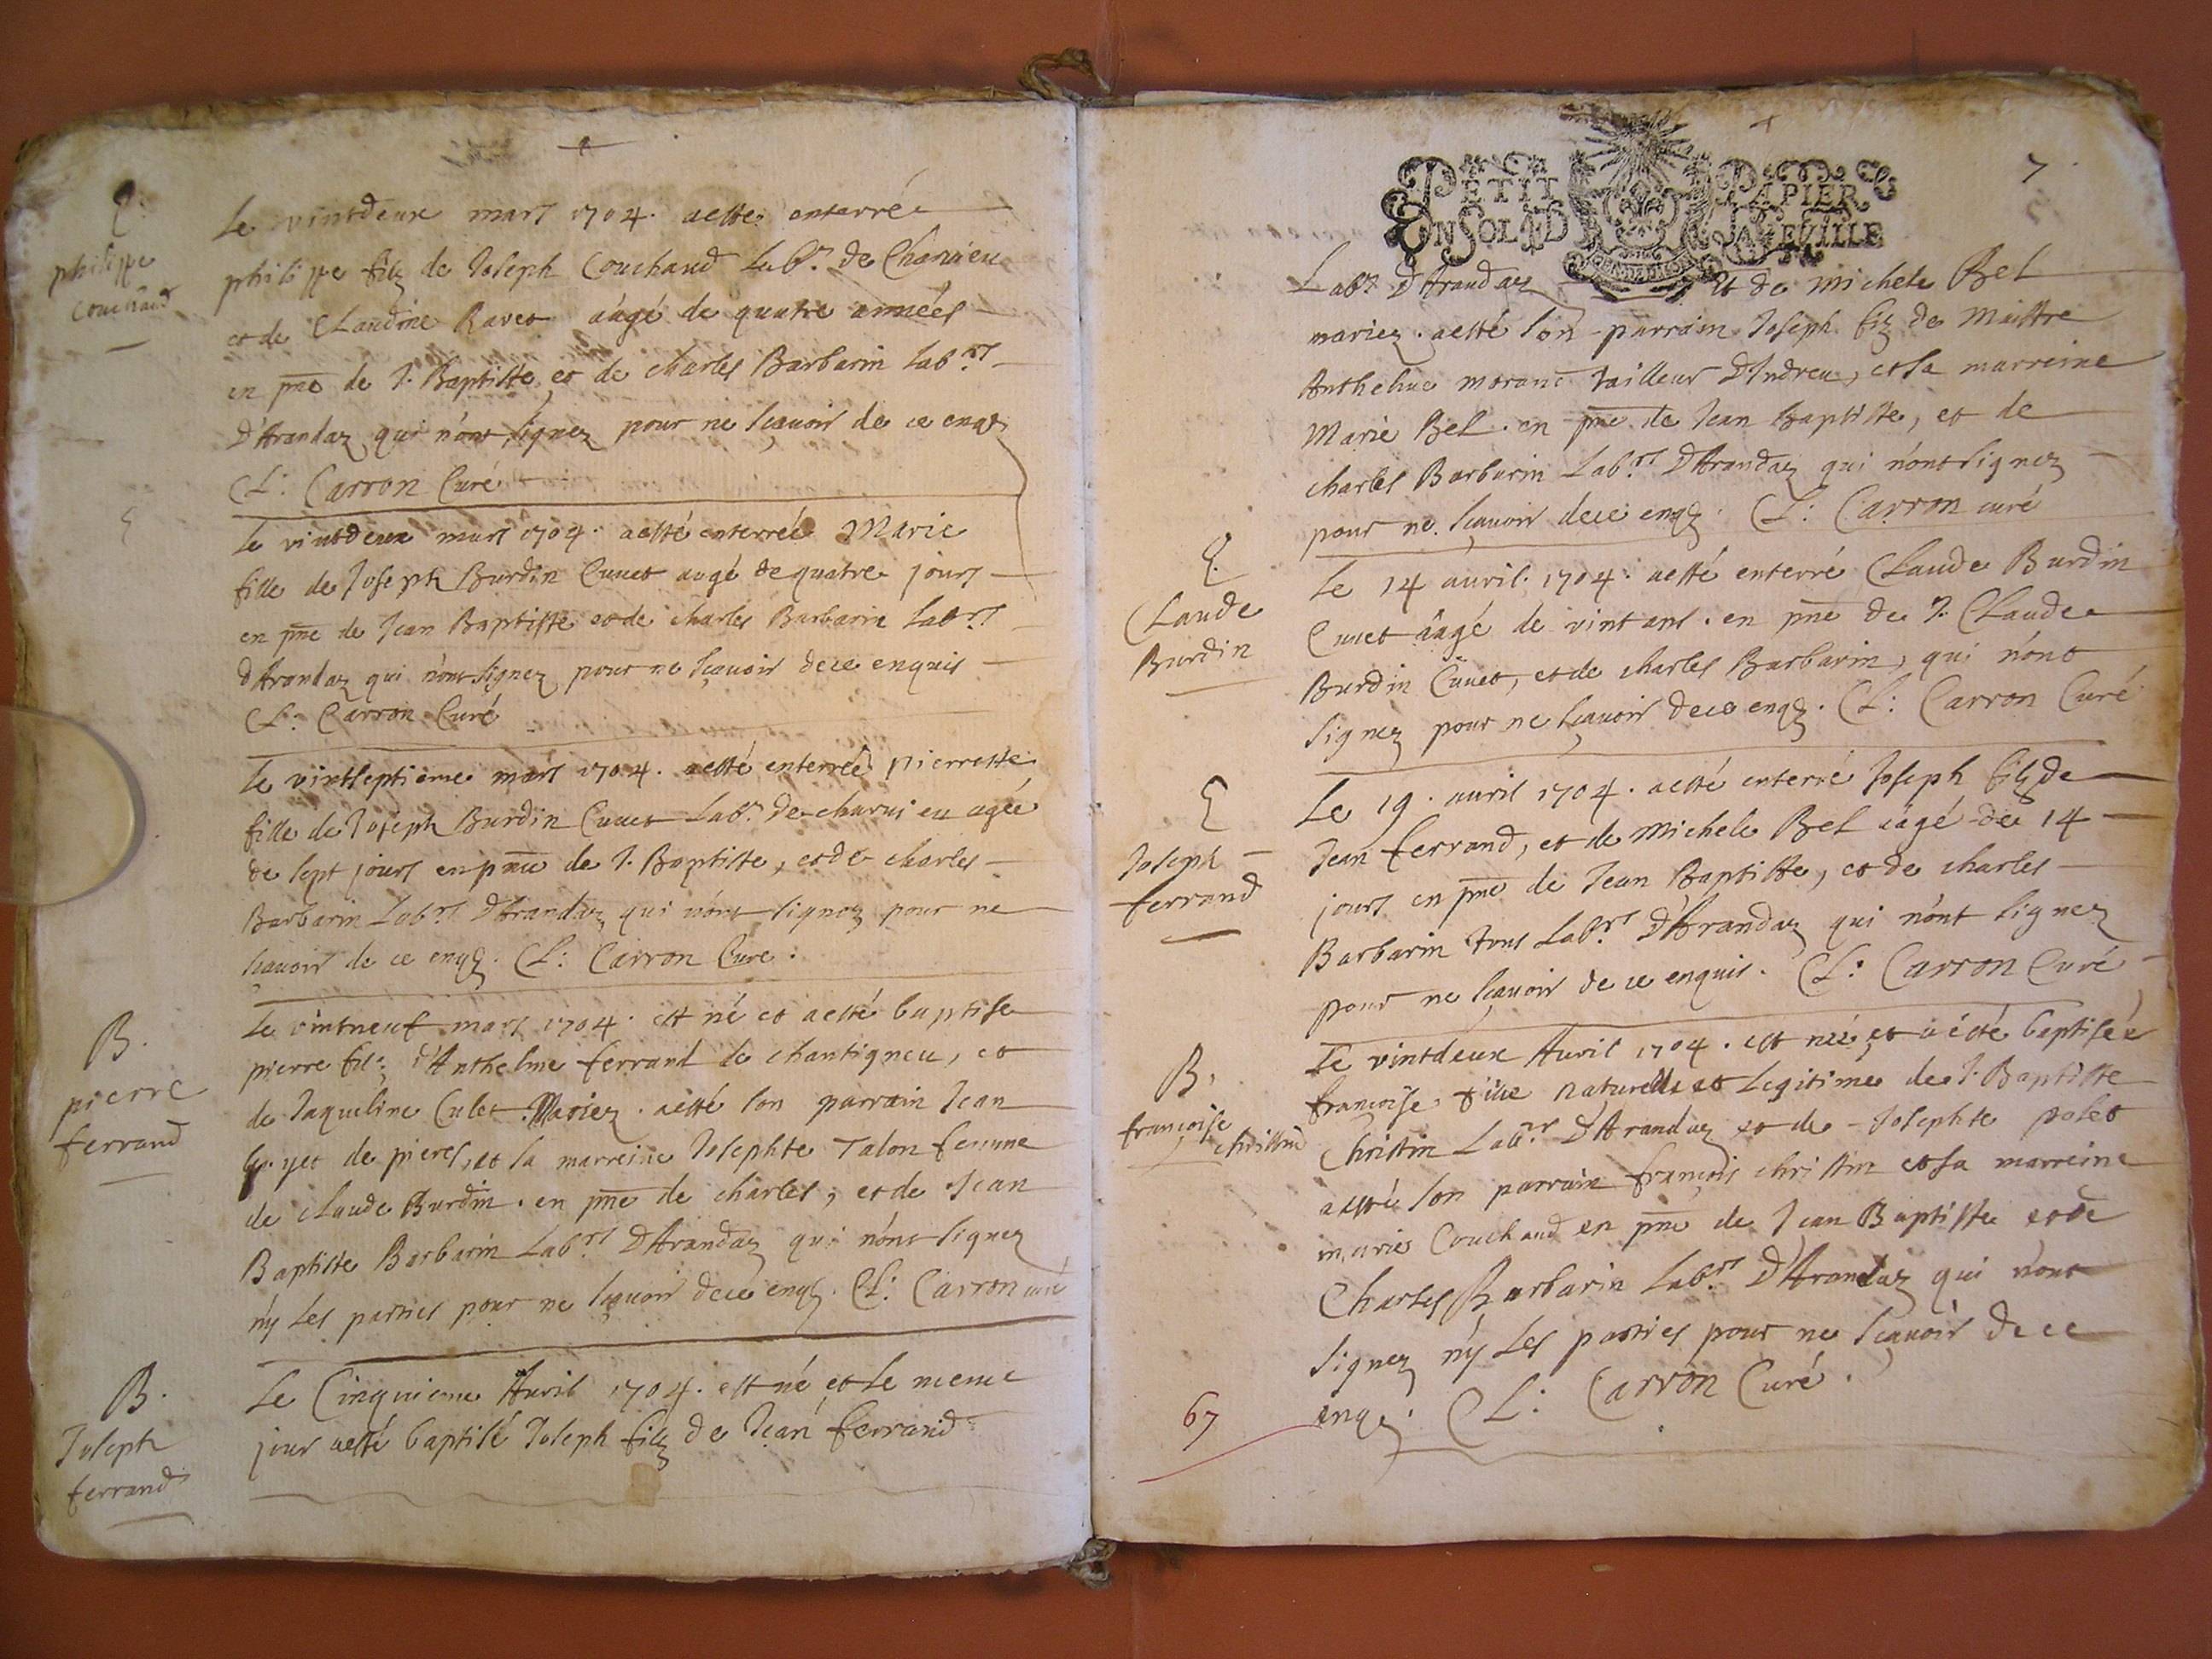 E.
philippe
Couchaud
Le vintdeux mars 1704. aesté enterré
philippe filz de Joseph Couchaud Labr. de Charvieu
et de Claudine Ravet aâgé de quatre années
en pñce de J. Baptiste et de charles Barbarin labrs
D'Arandaz qui n'ont signez pour ne sçavoir de ce enqz
CL: Carron Curé
Le vintdeux mars 1704. aesté enterrée Marie
fille de Joseph Burdin Cuuet aagé de quatre jours
en pñce de Jean Baptiste et de charles Barbarin Labrs
d'Arandaz qui n'ont signez pour ne sçavoir de ce enquis
CL: Carron Curé
Le vintseptieme mars 1704. aesté enterrée pierrette
fille de Joseph Burdin Cuuet Labr. de charvieu agée
de sept jours en pñce de J. Baptiste, et de charles
Barbarin Labrs D'Arandaz qui n'ont signez pour ne
sçavoir de ce enqz. CL: Carron Curé.
B.
pierre
ferrand
Le vintneuf mars 1704. est né et aesté baptise
pierre filz d'Anthelme ferrand de chantigneu, et
de Jaqueline Culet Mariez. aesté son parrain Jean
Guyet de pieres, et sa marreine Josephte Talon femme
de claude Burdin. en pñce de charles, et de Jean
Baptiste Barbarin Labrs D'Arandaz qui n'ont signez
n'y Les parties pour ne sçavoir de ce enqz. CL: Carron curé
B.
Joseph
ferrand
Le Cinquieme Avril 1704. est né et le meme
jour aesté baptisé Joseph filz de Jean ferrand
7
PETIT PAPIER
UN SOL D LA FEUILLE
Labr D'Arandaz et de Michele Bel
mariez. aesté son parrain Joseph filz de Maistre
Anthelme morand tailleur D'Indreu, et sa marreine
Marie Bel. en pñce de Jean Baptiste, et de
charles Barbarin Labrs D'Arandaz qui n'ont signez
pour ne sçavoir de ce enqz. CL: Carron curé
E.
Claude
Burdin
Le 14 avril. 1704. aesté enterré Claude Burdin
Cuuet aâgé de vint ans. en pñce de J. Claude
Burdin Cuuet, et de charles Barbarin, qui n'ont
signez pour ne sçavoir de ce enqz. CL: Carron Curé
E
Joseph
ferrand
Le 19. avril 1704. aesté enterré Joseph filz de
Jean ferrand, et de Michele Bel aâgé de 14
jours en pñce de Jean Baptiste, et de charles
Barbarin tous Labrs D'Arandaz qui n'ont signez
pour ne sçavoir de ce enquis. CL: Carron Curé
B.
françoise
christin
Le vintdeux Avril 1704. est née, et a esté baptisée
françoise fille naturelle et legitime de J. Baptiste
Christin Labr D'Arandaz et de Josephte polet
aesté son parrain françois christin et sa marreine
marie Couchaud en pñce de Jean Baptiste et de
Charles Barbarin Labrs D'Arandaz qui n'ont
signez n'y Les parties pour ne sçavoir de ce
enqz. CL: Carron Curé.
67